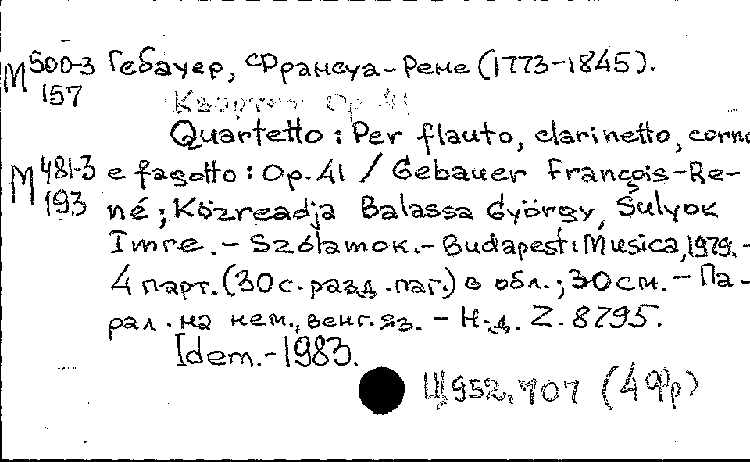 М 500-3 157 Гебауер, Франсуа-Рене (1773-1845).
Квартет Op. 41
Quartetto : Per flauto, clarinetto, corno
М 481-3 193 e fagotto : Op. 41 / Gebauer François-Re-
né ; Közreadja Balassa György, Sulyok
Imre. - Szólamok. - Budapest : Musica, 1979. -
4 парт. (30 с. разд. паг.) в обл. ; 30 см. - Па-
рал. на нем., венг. яз. - Н. д. Z. 8795.
Idem. - 1983.
Ц 952, 707 (4 Фр)